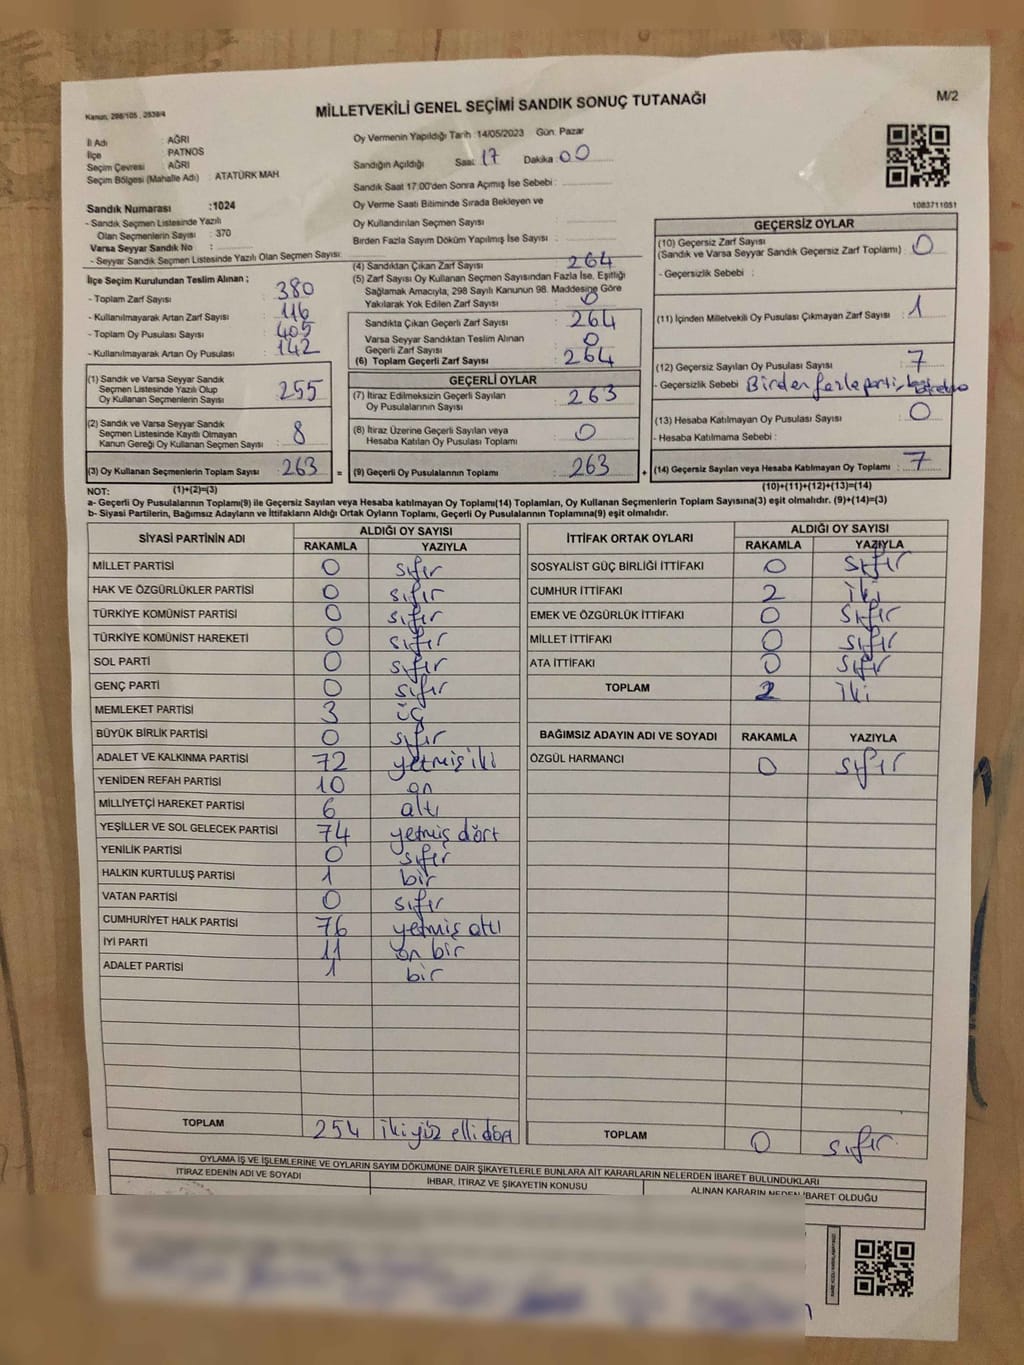 Kanun, 298/105 , 2839/4
MİLLETVEKİLİ GENEL SEÇİMİ SANDIK SONUÇ TUTANAĞI
M/2
İl Adı : AĞRI
İlçe : PATNOS
Seçim Çevresi : AĞRI
Seçim Bölgesi (Mahalle Adı) : ATATÜRK MAH
Sandık Numarası :1024
- Sandık Seçmen Listesinde Yazılı
Olan Seçmenlerin Sayısı : 370
Varsa Seyyar Sandık No :
- Seyyar Sandık Seçmen Listesinde Yazılı Olan Seçmen Sayısı:
Oy Vermenin Yapıldığı Tarih : 14/05/2023 Gün. Pazar
Sandığın Açıldığı Saat 17 Dakika : 00
Sandık Saat 17:00'den Sonra Açımış İse Sebebi :
Oy Verme Saati Bitiminde Sırada Bekleyen ve
Oy Kullandırılan Seçmen Sayısı :
Birden Fazla Sayım Döküm Yapılmış İse Sayısı :
1083711051
İlçe Seçim Kurulundan Teslim Alınan ;
- Toplam Zarf Sayısı : 380
- Kullanılmayarak Artan Zarf Sayısı : 116
- Toplam Oy Pusulası Sayısı : 405
- Kullanılmayarak Artan Oy Pusulası : 142
(1) Sandık ve Varsa Seyyar Sandık
Seçmen Listesinde Yazılı Olup
Oy Kullanan Seçmenlerin Sayısı : 255
(2) Sandık ve Varsa Seyyar Sandık
Seçmen Listesinde Kayıtlı Olmayan
Kanun Gereği Oy Kullanan Seçmen Sayısı : 8
(3) Oy Kullanan Seçmenlerin Toplam Sayısı : 263
(1)+(2)=(3)
(4) Sandıktan Çıkan Zarf Sayısı : 264
(5) Zarf Sayısı Oy Kullanan Seçmen Sayısından Fazla İse, Eşitliği
Sağlamak Amacıyla, 298 Sayılı Kanunun 98. Maddesine Göre
Yakılarak Yok Edilen Zarf Sayısı : 0
Sandıkta Çıkan Geçerli Zarf Sayısı : 264
Varsa Seyyar Sandıktan Teslim Alınan
Geçerli Zarf Sayısı : 0
(6) Toplam Geçerli Zarf Sayısı : 264
GEÇERLİ OYLAR
(7) İtiraz Edilmeksizin Geçerli Sayılan
Oy Pusulalarının Sayısı : 263
(8) İtiraz Üzerine Geçerli Sayılan veya
Hesaba Katılan Oy Pusulası Toplamı : 0
= (9) Geçerli Oy Pusulalarının Toplamı : 263
GEÇERSİZ OYLAR
(10) Geçersiz Zarf Sayısı
(Sandık ve Varsa Seyyar Sandık Geçersiz Zarf Toplamı) : 0
- Geçersizlik Sebebi :
(11) İçinden Milletvekili Oy Pusulası Çıkmayan Zarf Sayısı : 1
(12) Geçersiz Sayılan Oy Pusulası Sayısı : 7
- Geçersizlik Sebebi : Birden fazla parti
(13) Hesaba Katılmayan Oy Pusulası Sayısı : 0
- Hesaba Katılmama Sebebi :
+ (14) Geçersiz Sayılan veya Hesaba Katılmayan Oy Toplamı : 7
(10)+(11)+(12)+(13)=(14)
NOT:
a- Geçerli Oy Pusulalarının Toplamı(9) ile Geçersiz Sayılan veya Hesaba katılmayan Oy Toplamı(14) Toplamları, Oy Kullanan Seçmenlerin Toplam Sayısına(3) eşit olmalıdır. (9)+(14)=(3)
b- Siyasi Partilerin, Bağımsız Adayların ve İttifakların Aldığı Ortak Oyların Toplamı, Geçerli Oy Pusulalarının Toplamına(9) eşit olmalıdır.
SİYASİ PARTİNİN ADI ALDIĞI OY SAYISI
RAKAMLA YAZIYLA
MİLLET PARTİSİ 0 sıfır
HAK VE ÖZGÜRLÜKLER PARTİSİ 0 sıfır
TÜRKİYE KOMÜNİST PARTİSİ 0 sıfır
TÜRKİYE KOMÜNİST HAREKETİ 0 sıfır
SOL PARTİ 0 sıfır
GENÇ PARTİ 0 sıfır
MEMLEKET PARTİSİ 3 üç
BÜYÜK BİRLİK PARTİSİ 0 sıfır
ADALET VE KALKINMA PARTİSİ 72 yetmiş iki
YENİDEN REFAH PARTİSİ 10 on
MİLLİYETÇİ HAREKET PARTİSİ 6 altı
YEŞİLLER VE SOL GELECEK PARTİSİ 74 yetmiş dört
YENİLİK PARTİSİ 0 sıfır
HALKIN KURTULUŞ PARTİSİ 1 bir
VATAN PARTİSİ 0 sıfır
CUMHURİYET HALK PARTİSİ 76 yetmiş altı
İYİ PARTİ 11 on bir
ADALET PARTİSİ 1 bir
TOPLAM 254 iki yüz elli dört
İTTİFAK ORTAK OYLARI ALDIĞI OY SAYISI
RAKAMLA YAZIYLA
SOSYALİST GÜÇ BİRLİĞİ İTTİFAKI 0 sıfır
CUMHUR İTTİFAKI 2 iki
EMEK VE ÖZGÜRLÜK İTTİFAKI 0 sıfır
MİLLET İTTİFAKI 0 sıfır
ATA İTTİFAKI 0 sıfır
TOPLAM 2 iki
BAĞIMSIZ ADAYIN ADI VE SOYADI RAKAMLA YAZIYLA
ÖZGÜL HARMANCI 0 sıfır
TOPLAM 0 sıfır
OYLAMA İŞ VE İŞLEMLERİNE VE OYLARIN SAYIM DÖKÜMÜNE DAİR ŞİKAYETLERLE BUNLARA AİT KARARLARIN NELERDEN İBARET BULUNDUKLARI
İTİRAZ EDENİN ADI VE SOYADI İHBAR, İTİRAZ VE ŞİKAYETİN KONUSU ALINAN KARARIN NEDEN İBARET OLDUĞU